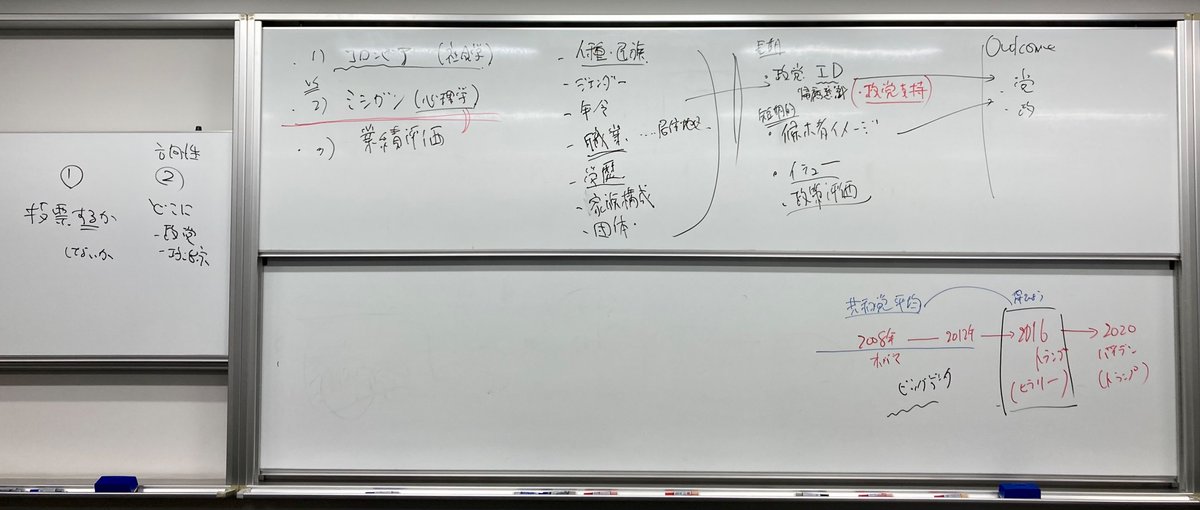 方向性
① ②
投票するか
しないか
どこに
- 政党
1) コロンビア (社会学)
vs
2) ミシガン (心理学)
3) 業績評価
- 人種・民族
- ジェンダー
- 年令
- 職業 ....居住地域
- 学歴
- 家族構成
- 団体
長期
・政党 ID
帰属意識 (・政党支持)
短期的
・候補者イメージ
・イシュー
・政策評価
Outcome
・党
・政
共和党平均
2008年 — 2012年 → 2016 → 2020
オバマ
トランプ
(ヒラリー)
バイデン
(トランプ)
ビッグデータ